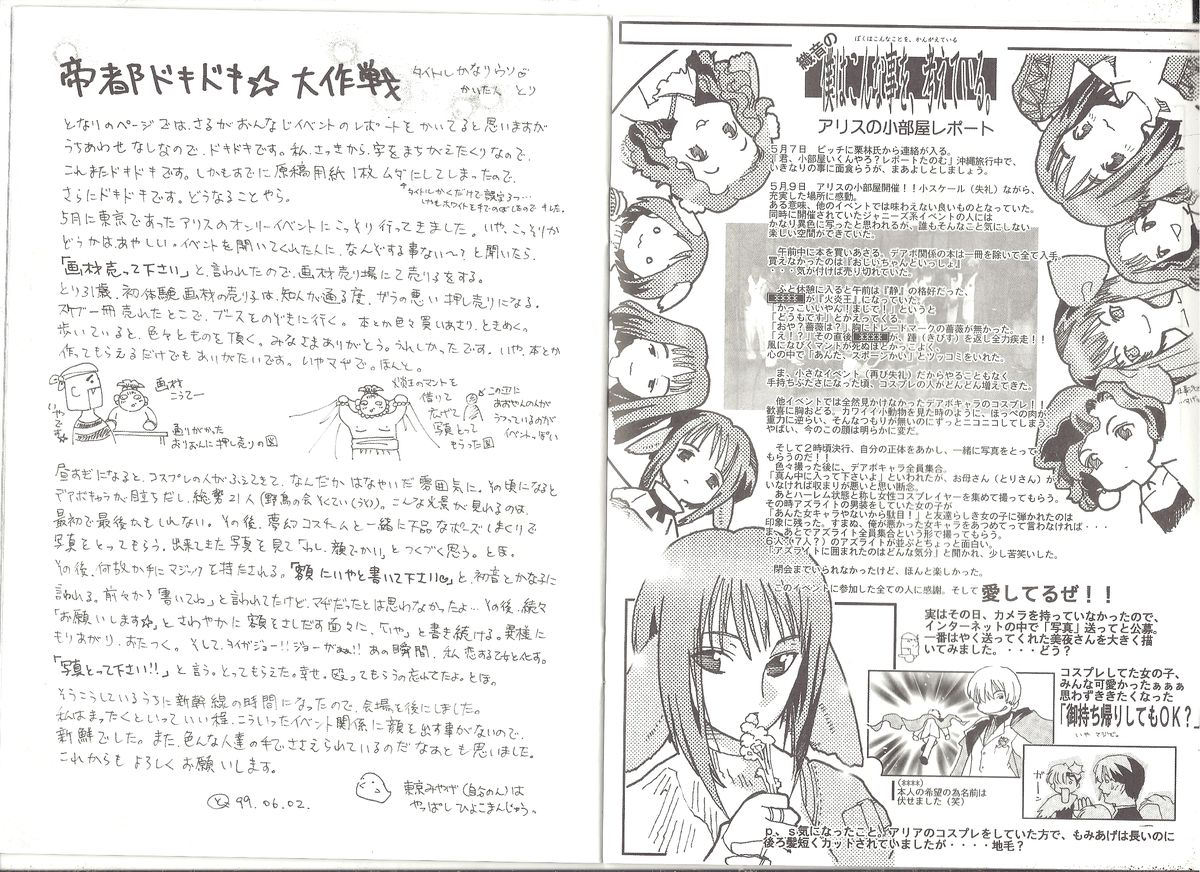 帝都ドキドキ☆大作戦
タイトルかなりウソ
かいた人 とり
となりのページでは、さるがおんなじイベントのレポートをかいてると思いますが
うちあわせなしなので、ドキドキです。私、さっきから、字をまちがえたくりなので、
これまたドキドキです。しかもすでに原稿用紙1枚ムダにしてしまったので、
さらにドキドキです。どうなることやら。
5月に東京であったアリスのオンリーイベントにこっそり行ってきました。いや、こっそりか
どうかはあやしい。イベントを開いてくれた人に、なんどする事ない〜?と聞いたら、
「画材売って下さい」と、言われたので、画材売り場にて売り子をする。
とり31歳、初体験画材の売り子は、知人が通る度、ガラの悪い押し売りになる。
スケブ一冊売れたとこで、ブースをのぞきに行く。本とか色々買いあさり、ときめく。
歩いていると、色々とものを頂く。みなさまありがとう。うれしかったです。いや、本とか
作ってもらえるだけでもありがたいです。いやマヂで。ほんと。
画材
こうてー
いやです
ありがかった
おりおんに押し売りの図
炎王のマントを
借りて
広げて
写真とって
もらった図
この辺に
あおやんの人が
うつっているのが
イベントっぽい
昼すぎになると、コスプレの人がふえてきて、なんだかはなやいだ雰囲気に。その頃になると
デアボキャラが目立ちだし、総勢21人(野鳥の会そくてい(うそ))。こんな光景が見れるのは、
最初で最後かもしれない。その後、夢幻コスチームと一緒に不品なポーズしまくりで
写真をとってもらう。出来てきた写真を見て「わし、顔でかい」とつくづく思う。とほ。
その後、何故か手にマジックを持たされる。「額にいやと書いて下さい」と、初音とかな子に
言われる。前々から「書いてね」と言われてたけど、マヂだったとは思わなかったよ…その後、続々
「お願いします☆」とさわやかに額をさしだす面々に、「いや」と書き続ける。異様に
もりあがり、おたつく。そして、タイガジョー!!ジョーがぁぁ!!あの瞬間、私恋する乙女と化す。
「写真とって下さい!!」と言う。とってもらえた。幸せ。殴ってもらうの忘れてたよ。とほ。
そうこうしているうちに新幹線の時間になったので、会場を後にしました。
私はまったくといっていい程、こういったイベント関係に顔を出す事がないので、
新鮮でした。また、色んな人達の手でささえられているのだなぁとも思いました。
これからもよろしくお願いします。
99.06.02.
東京みやげ(自分のん)は
やっぱしひよこまんじゅう。
ぼくはこんなことを、かんがえている
織音の
僕はこんな事を、考えている。
アリスの小部屋レポート
5月7日 ピッチに栗林氏から連絡が入る。
「君、小部屋いくんやろ?レポートたのむ」沖縄旅行中で、
いきなりの事に面食らうが、まあよしとしましょう。
5月9日 アリスの小部屋開催!!小スケール(失礼)ながら、
充実した場所に感動。
ある意味、他のイベントでは味わえない良いものとなっていた。
同時に開催されていたジャニーズ系イベントの人には
かなり異色に写ったと思われるが、誰もそんなこと気にしない
楽しい空間ができていた。
午前中に本を買いあさる、デアボ関係の本は一冊を除いて全て入手。
買えなかったのは『おじいちゃんといっしょ』
・・・気が付けば売り切れていた。
ふと休憩に入ると午前は『静』の格好だった、
****が『火炎王』になっていた。
「かっこいいやん!まじで!」というと
「どうもです」とかえってくる。
「おや?薔薇は?」胸にトレードマークの薔薇が無かった。
「え!?」その直後****が、踵(きびす)を返し全力疾走!!
風になびくマントが死ぬほどかっこよく、
心の中で「あんた、スポーンかい」とツッコミをいれた。
ま、小さなイベント(再び失礼)だからやることもなく
手持ちぶたさになった頃、コスプレの人がどんどん増えてきた。
他イベントでは全然見かけなかったデアボキャラのコスプレ!!
歓喜に胸おどる。カワイイ小動物を見た時のように、ほっぺの肉が
重力に逆らい、そんなつもりが無いのにずっとニコニコしてしまう。
やばい、今のこの顔は明らかに変だ。
そして2時頃決行、自分の正体をあかし、一緒に写真をとって
もらうのだ!!
色々撮った後に、デアボキャラ全員集合。
「真ん中に入って下さいよ」といわれたが、お母さん(とりさん)が
いなければ収まりが悪いと思い断念。
あとハーレム状態と称し女性コスプレイヤーを集めて撮ってもらう。
その時アズライトの男装をしていた女の子が
「あんた女キャラやないから駄目!」と友達らしき女の子に弾かれたのは
印象に残った。すまぬ、俺が悪かった女キャラをあつめてって言わなければ・・・
ま、あとでアズライト全員集合という形で撮ってもらう。
6人(7人?)のアズライトが並ぶとちょっと面白い。
「アズライトに囲まれたのはどんな気分」と聞かれ、少し苦笑いした。
閉会までいられなかったけど、ほんと楽しかった。
このイベントに参加した全ての人に感謝。そして 愛してるぜ!!
実はその日、カメラを持っていなかったので、
インターネットの中で「写真」送ってと公募。
一番はやく送ってくれた美夜さんを大きく描
いてみました。・・・・どう?
コスプレしてた女の子、
みんな可愛かったぁぁぁ
思わずききたくなった
「御持ち帰りしてもOK?」
いや マジで。
(****)
本人の希望の為名前は
伏せました(笑)
ガーン
p、s気になったこと。アリアのコスプレをしていた方で、もみあげは長いのに
後ろ髪短くカットされていましたが・・・・地毛?